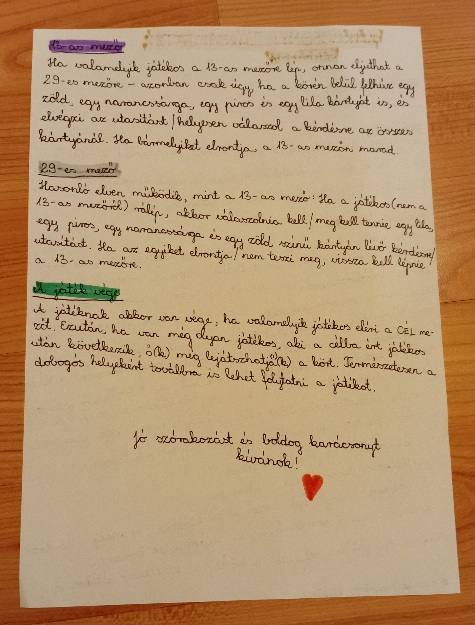 13-as mező
Ha valamelyik játékos a 13-as mezőre lép, onnan eljuthat a
29-es mezőre – azonban csak úgy, ha a körén belül felhúz egy
zöld, egy narancssárga, egy piros és egy lila kártyát is, és
elvégzi az utasítást/helyesen válaszol a kérdésre az összes
kártyánál. Ha bármelyiket elrontja, a 13-as mezőn marad.
29-es mező
Hasonló elven működik, mint a 13-as mező: Ha a játékos (nem a
13-as mezőről) rálép, akkor válaszolnia kell/meg kell tennie egy lila,
egy piros, egy narancssárga és egy zöld színű kártyán lévő kérdésre/
utasítást. Ha az egyiket elrontja/nem teszi meg, vissza kell lépnie
a 13-as mezőre.
A játék vége
A játéknak akkor van vége, ha valamelyik játékos eléri a CÉL me-
zőt. Ezután, ha van még olyan játékos, aki a célba ért játékos
után következik, ő(k) még lejátszhatjá(k) a kört. Természetesen a
dobogós helyekért továbbra is lehet folytatni a játékot.
Jó szórakozást és boldog karácsonyt
kívánok!